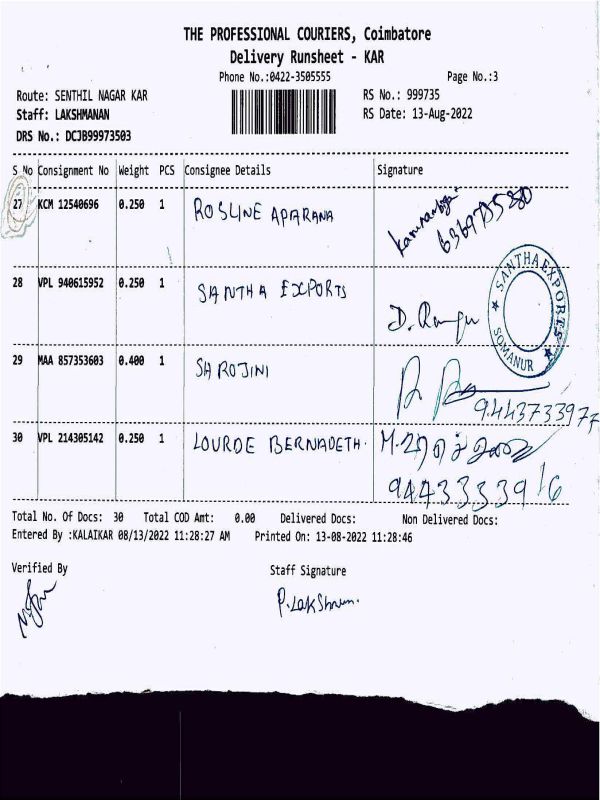 THE PROFESSIONAL COURIERS, Coimbatore
Delivery Runsheet - KAR
Phone No.:0422-3505555 Page No.:3
Route: SENTHIL NAGAR KAR RS No.: 999735
Staff: LAKSHMANAN RS Date: 13-Aug-2022
DRS No.: DCJB99973503
S No Consignment No Weight PCS Consignee Details Signature
27 KCM 12540696 0.250 1 ROSLINE APARANA
28 VPL 940615952 0.250 1 SANTHA EXPORTS
SANTHA EXPORTS
SOMANUR
29 MAA 857353603 0.400 1 SAROJINI
9443733977
30 VPL 214305142 0.250 1 LOURDE BERNADETH.
Total No. Of Docs: 30 Total COD Amt: 0.00 Delivered Docs: Non Delivered Docs:
Entered By :KALAIKAR 08/13/2022 11:28:27 AM Printed On: 13-08-2022 11:28:46
Verified By Staff Signature